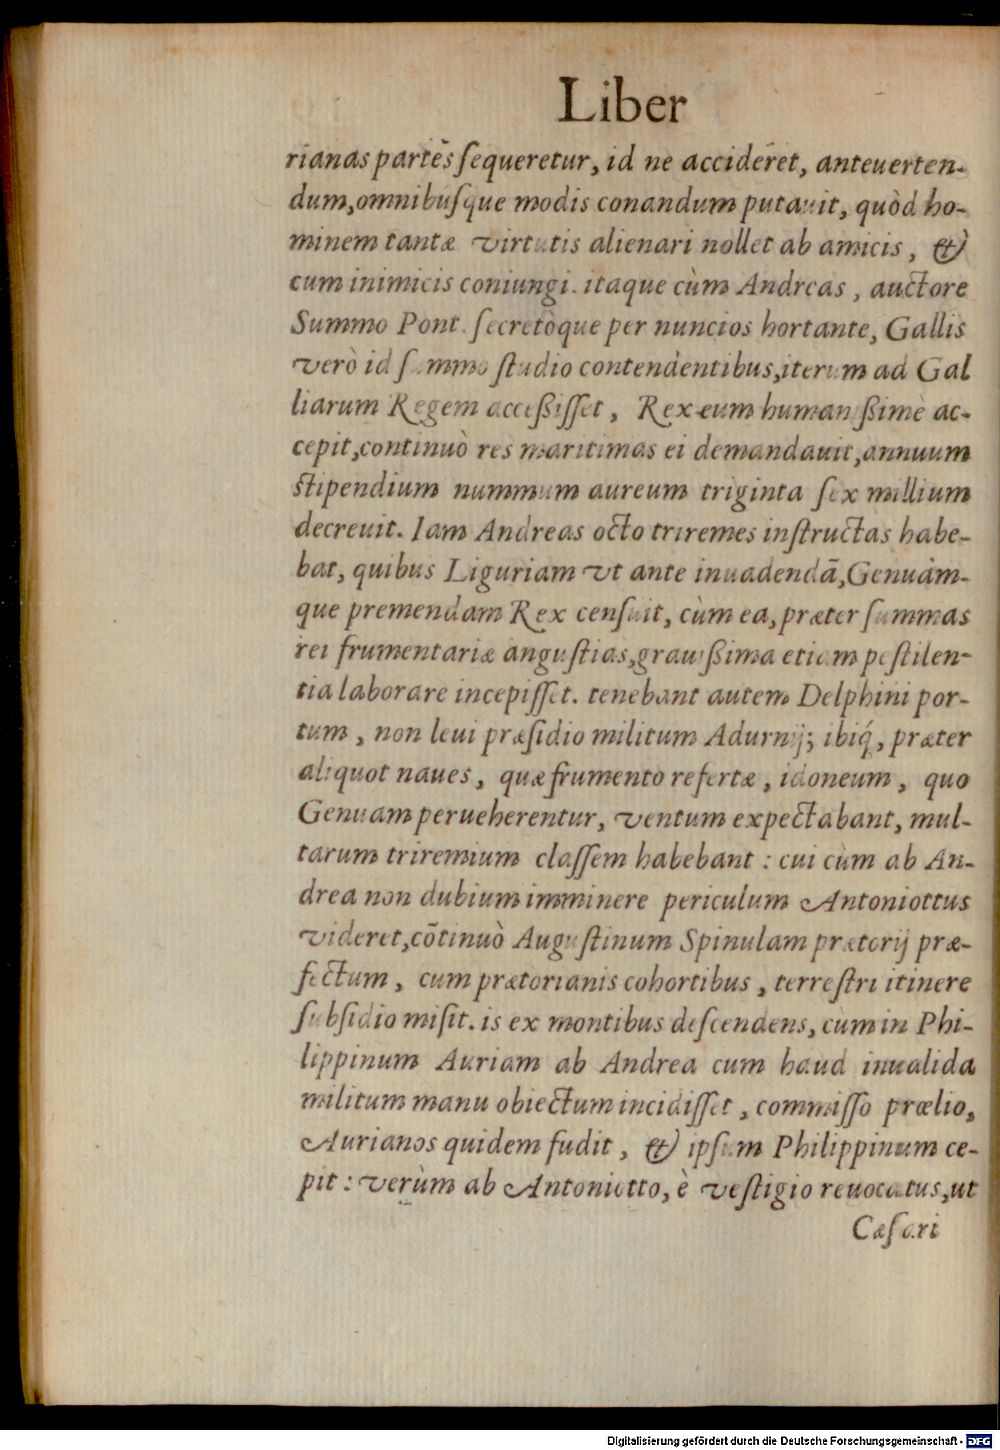 Liber
rianas partēs ſequeretur, id ne accideret, anteuerten-
dum, omnibuſque modis conandum putauit, quòd ho-
minem tantæ virtutis alienari nollet ab amicis, &
cum inimicis coniungi. itaque cùm Andreas, auctore
Summo Pont. ſecretòque per nuncios hortante, Gallis
verò id ſummo ſtudio contendentibus, iterum ad Gal
liarum Regem acceßiſſet, Rex eum humanißimè ac-
cepit, continuò res maritimas ei demandauit, annuum
ſtipendium nummum aureum triginta ſex millium
decreuit. Iam Andreas octo triremes inſtructas habe-
bat, quibus Liguriam vt ante inuadendā, Genuám-
que premendam Rex cenſuit, cùm ea, præter ſummas
rei frumentariæ anguſtias, grauißima etiam peſtilen-
tia laborare incepiſſet. tenebant autem Delphini por-
tum, non leui præſidio militum Adurnij; ibiq́, præter
aliquot naues, quæ frumento refertæ, idoneum, quo
Genuam perueherentur, ventum expectabant, mul-
tarum triremium claſſem habebant: cui cùm ab An-
drea non dubium imminere periculum Antoniottus
videret, cōtinuò Auguſtinum Spinulam prætorij præ-
fectum, cum prætorianis cohortibus, terreſtri itinere
ſubſidio miſit. is ex montibus deſcendens, cùm in Phi-
lippinum Auriam ab Andrea cum haud inualida
militum manu obiectum incidiſſet, commiſſo prœlio,
Aurianos quidem fudit, & ipſum Philippinum ce-
pit: verùm ab Antoniotto, è veſtigio reuocatus, ut
Cæſari
Digitalisierung gefördert durch die Deutsche Forschungsgemeinschaft - DFG